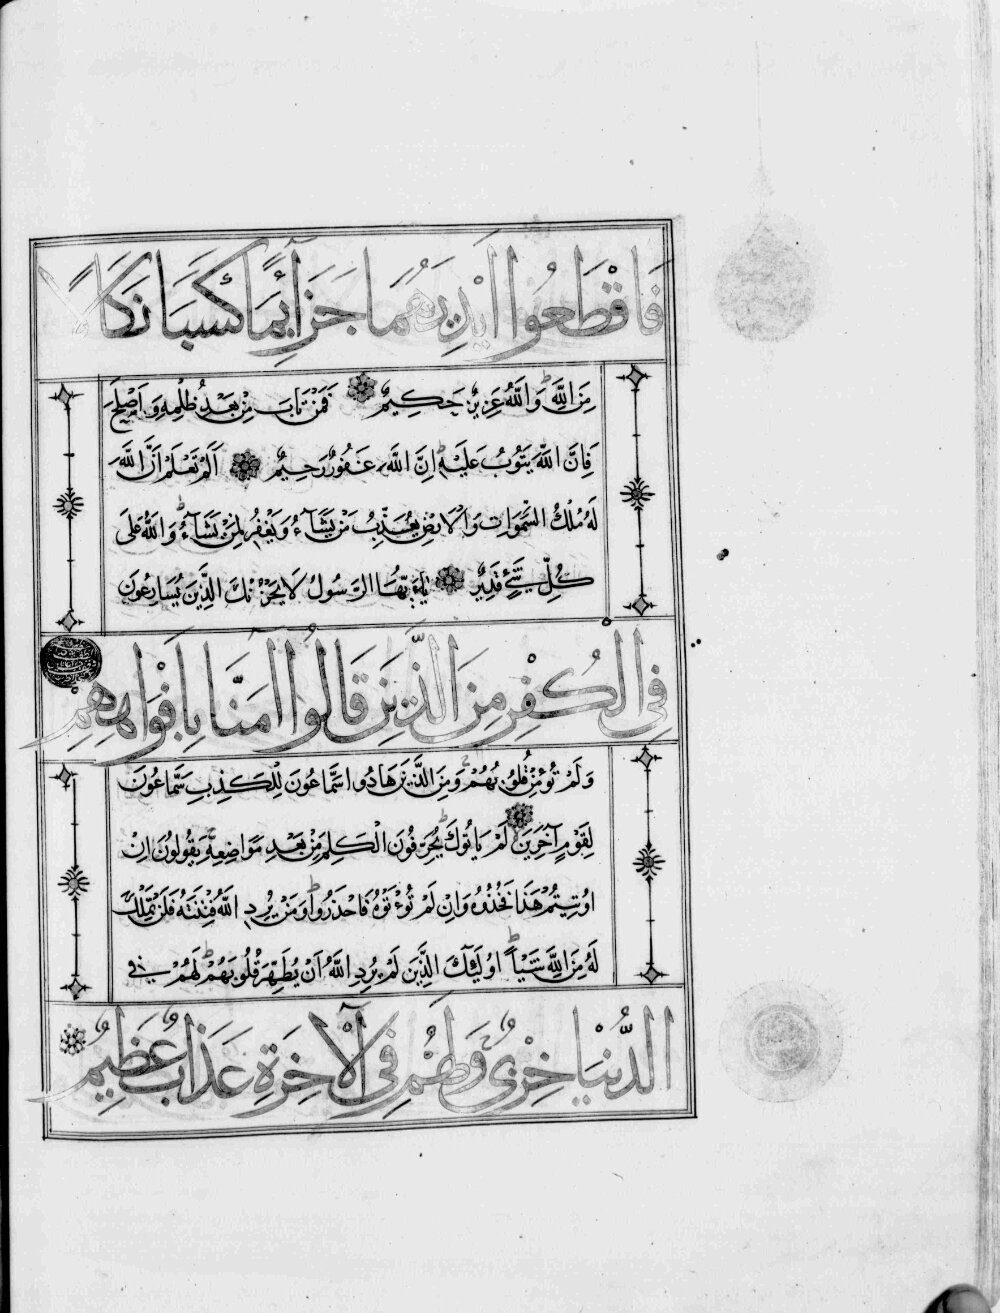 فَاقْطَعُوا اَيْدِيَهُمَا جَزَآءً بِمَا كَسَبَا نَكَالًا
مِنَ اللَّهِ وَاللَّهُ عَزِيزٌ حَكِيمٌ فَمَنْ تَابَ مِنْ بَعْدِ ظُلْمِهِ وَاَصْلَحَ
فَاِنَّ اللَّهَ يَتُوبُ عَلَيْهِ اِنَّ اللَّهَ غَفُورٌ رَحِيمٌ اَلَمْ تَعْلَمْ اَنَّ اللَّهَ
لَهُ مُلْكُ السَّمٰوَاتِ وَالْاَرْضِ يُعَذِّبُ مَنْ يَشَآءُ وَيَغْفِرُ لِمَنْ يَشَآءُ وَاللَّهُ عَلَى
كُلِّ شَيْءٍ قَدِيرٌ يَآ اَيُّهَا الرَّسُولُ لَا يَحْزُنْكَ الَّذِينَ يُسَارِعُونَ
فِي الْكُفْرِ مِنَ الَّذِينَ قَالُوا آمَنَّا بِاَفْوَاهِهِمْ
وَلَمْ تُؤْمِنْ قُلُوبُهُمْ وَمِنَ الَّذِينَ هَادُوا سَمَّاعُونَ لِلْكَذِبِ سَمَّاعُونَ
لِقَوْمٍ آخَرِينَ لَمْ يَاْتُوكَ يُحَرِّفُونَ الْكَلِمَ مِنْ بَعْدِ مَوَاضِعِهِ يَقُولُونَ اِنْ
اُوتِيتُمْ هٰذَا فَخُذُوهُ وَاِنْ لَمْ تُؤْتَوْهُ فَاحْذَرُوا وَمَنْ يُرِدِ اللَّهُ فِتْنَتَهُ فَلَنْ تَمْلِكَ
لَهُ مِنَ اللَّهِ شَيْئًا اُولٰٓئِكَ الَّذِينَ لَمْ يُرِدِ اللَّهُ اَنْ يُطَهِّرَ قُلُوبَهُمْ لَهُمْ فِي
الدُّنْيَا خِزْيٌ وَلَهُمْ فِي الْآخِرَةِ عَذَابٌ عَظِيمٌ